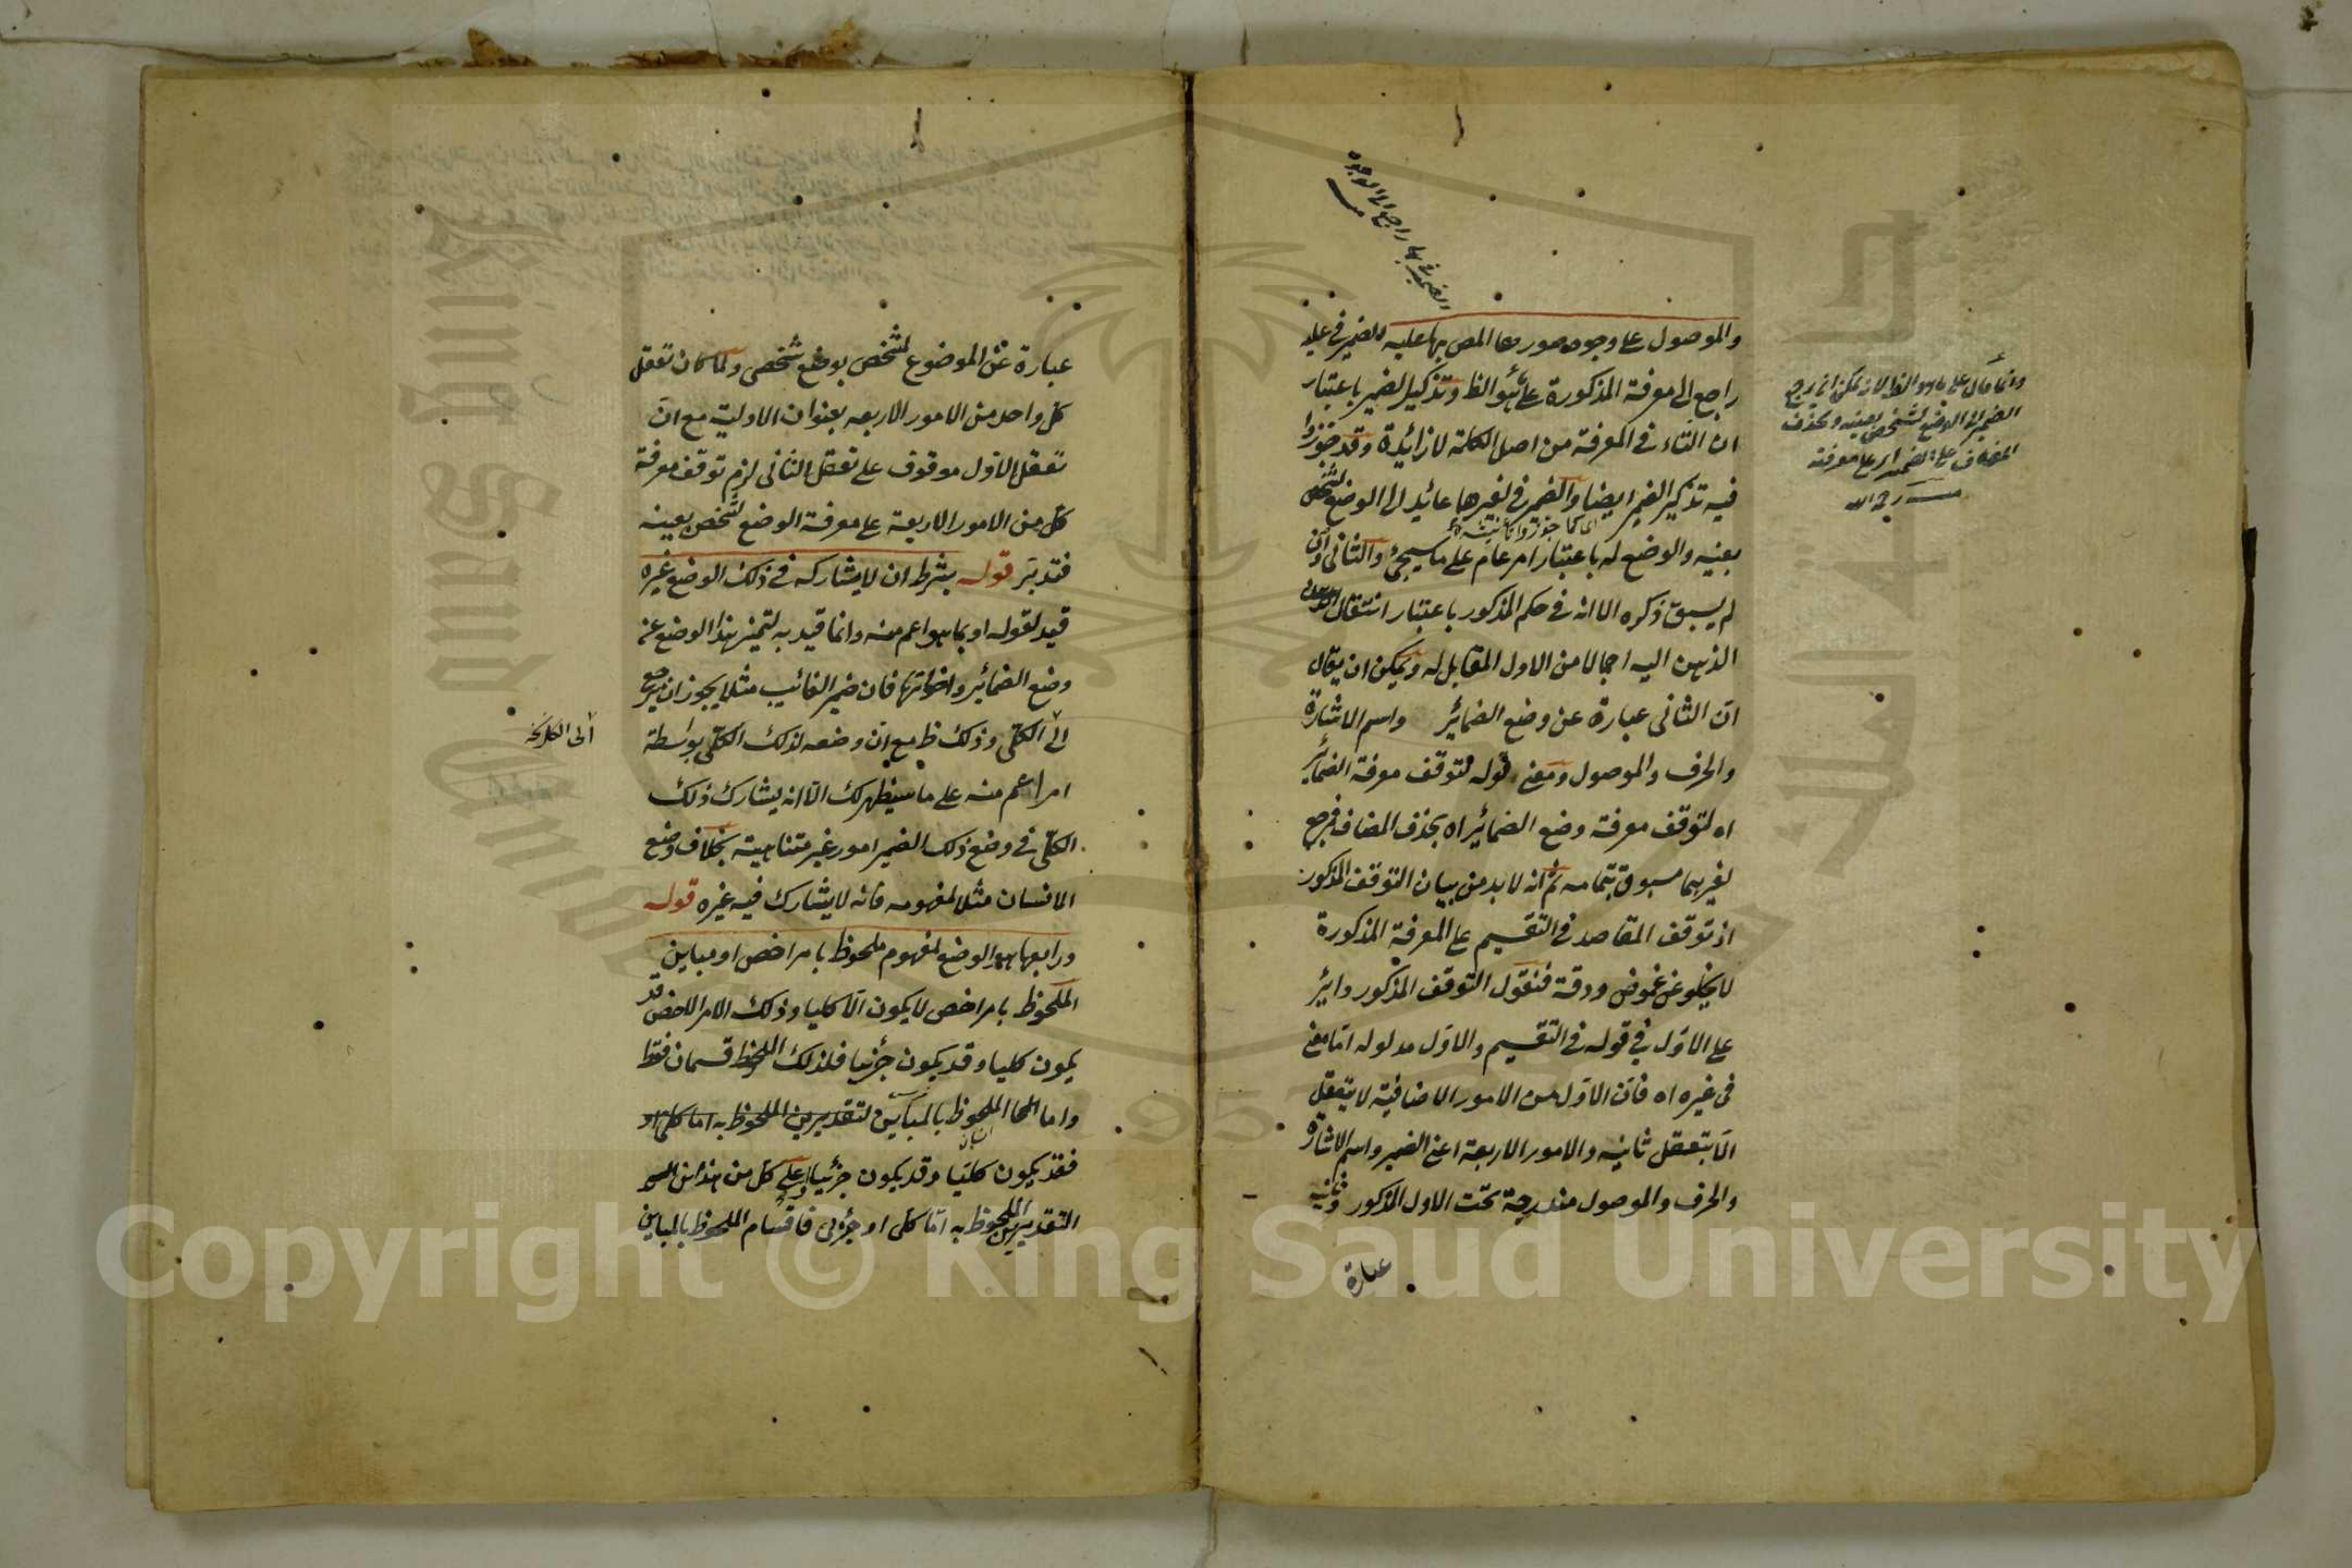 الضمير في بها راجع الى الوجوه
منه
والموصول على وجوه صورها المص بها عليه الضمير في عليه
راجع الى معرفة المذكورة على ما هو الظ وتذكير الضمير باعتبار
ان التاء في المعرفة من اصل الكلمة لا زائدة وقد جوزوا
فيه تذكير الضمير ايضا والضمير في لغيرها عائد الى الوضع لشخص
اى كما جوزوا تأنيثه
بعينه والوضع له باعتبار امر عام على ما سيجئ والثانى وان
لم يسبق ذكره الا انه في حكم المذكور باعتبار انتقال
الذهن اليه اجمالا من الاول المقابل له ويمكن ان يقال
ان الثانى عبارة عن وضع الضمائر واسم الاشارة
والحرف والموصول ومعنى قوله لتوقف معرفة الضمائر
اه لتوقف معرفة وضع الضمائر اه بحذف المضاف فمرجع
لغيرها مسبوق بتمامه ثم انه لا بد من بيان التوقف المذكور
اذ توقف المقاصد في التقسيم على المعرفة المذكورة
لا يخلو عن غموض ودقة فنقول التوقف المذكور دائر
على الاول في قوله في التقسيم والاول مدلوله اما معنى
في غيره اه فان الاول من الامور الاضافية لا يتعقل
الا بتعقل ثانيه والامور الاربعة اعنى الضمير واسم الاشارة
والحرف والموصول مندرجة تحت الاول المذكور وثانيه
عبارة
وانما قال على ما هو الظ لانه يمكن ان يرجع
الضمير الى الوضع لشخص بعينه وبحذف
المضاف على الضمير اى على معرفته
منه رحمه الله
عبارة عن الموضوع لمشخص بوضع شخصى ولما كان تعقل
كل واحد من الامور الاربعه بعنوان الاولية مع ان
تعقل الاول موقوف على تعقل الثانى لزم توقف معرفة
كل من الامور الاربعة على معرفة الوضع لشخص بعينه
فتدبر قوله بشرط ان لا يشاركه في ذلك الوضع غيره
قيد لقوله او بما هو اعم منه وانما قيد به لتميز هذا الوضع عن
وضع الضمائر واخواتها فان ضمير الغائب مثلا يجوز ان يرجع
الى الكلى وذلك ظ مع ان وضعه لذلك الكلى بواسطة
امر اعم منه على ما سيظهر لك الا انه يشارك ذلك
الكلى في وضع ذلك الضمير امور غير متناهية بخلاف وضع
الانسان مثلا لمفهومه فانه لا يشارك فيه غيره قوله
ورابعها هو الوضع لمفهوم ملحوظ بامر اخص او مباين
الملحوظ بامر اخص لا يكون الا كليا وذلك الامر الاخص قد
يكون كليا وقد يكون جزئيا فلذلك الملحوظ قسمان فقط
واما الملحوظ بالمباين لتقديرين الملحوظ به اما كلى او
فقد يكون كليا وقد يكون جزئيا وعلى كل من هذين
التقديرين الملحوظ به اما كلى او جزئى فاقسام الملحوظ بالمباين
Copyright © King Saud University
King Saud University
1957